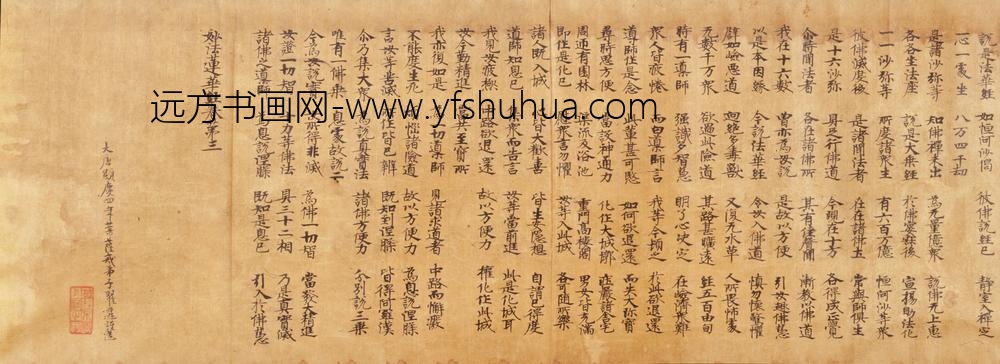 說是法華經 如恒河沙偈 彼佛說經已 靜室入禪定
一心一處坐 八万四千劫
是諸沙弥等 知佛禪未出 為无量億衆 說佛无上惠
各各坐法座 說是大乘經 於佛宴寂後 宣揚助法化
一一沙弥等 所度諸衆生 有六百万億 恒河沙等衆
彼佛滅度後 是諸聞法者 在在諸佛土 常與師俱生
是十六沙弥 具足行佛道 今現在十方 各得成正覺
尒時聞法者 各在諸佛所 其有住聲聞 漸教以佛道
我在十六數 曾亦為汝說 是故以方便 引汝趣佛惠
以是本因緣 今說法華經 令汝入佛道 慎勿懷驚懼
譬如嶮惡道 迥絕多毒獸 又復无水草 人所畏怖處
无數千万衆 欲過此嶮道 其路甚曠遠 經五百由旬
時有一導師 强識有智惠 明了心决定 在嶮濟衆難
衆人皆疲惓 而白導師言 我等今頓乏 於此欲退還
導師作是念 此輩甚可愍 如何欲退還 而失大珎寶
尋時思方便 當設神通力 化作大城槨 莊嚴諸舍宅
周迊有園林 渠流及浴池 重門高樓閣 男女皆充滿
即作是化已 慰衆言勿懼 汝等入此城 各可隨所樂
諸人既入城 心皆大歡喜 皆生安隱想 自謂已得度
導師知息已 集衆而告言 汝等當前進 此是化城耳
我見汝疲極 中路欲退還 故以方便力 權化作此城
汝今勤精進 當共至寶所
我亦復如是 為一切導師 見諸求道者 中路而懈廢
不能度生死 煩惱諸險道 故以方便力 為息說涅槃
言汝等苦滅 所作皆已辦 既知到涅槃 皆得阿羅漢
尒乃集大衆 為說真實法 諸佛方便力 分別說三乘
唯有一佛乘 息處故說二
今為汝說實 汝所得非滅 為佛一切智 當發大精進
汝證一切智 十力等佛法 具三十二相 乃是真實滅
諸佛之導師 為息說涅槃 既知是息已 引入於佛惠
妙法蓮華經卷第三
大唐顯慶四年 菩薩戒弟子
远方书画网-www.yfshuhua.com